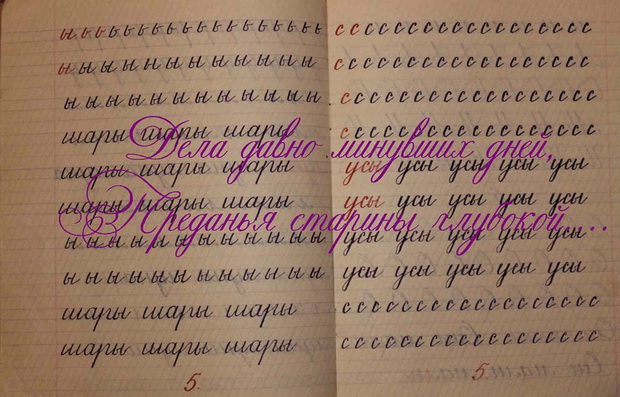 ы ь ь ь ь ь ь ь ь ь ь ь ь ь ь ь ь ь
ы ы ы ы ы ы ы ы ы ы ы ы ы
ы ы ы ы ы ы ы ы ы ы ы ы ы
шары шары шары
шары шары шары
шары шары шары
ы ы ы ы ы ы ы ы ы ы ы ы ы
ы ы ы ы ы ы ы ы ы ы ы ы ы
шары шары шары
шары шары шары
5.
с с с с с с с с с с с с с с с с с
с с с с с с с с с с с с с с с с с
с с с с с с с с с с с с с с с с с
с с с с с с с с с с с с с с с с с
усы усы усы усы усы
усы усы усы усы усы
усы усы усы усы усы
усы усы усы усы усы
с с с с с с с с с с с с с с с с с
с с с с с с с с с с с с с с с с с
5.
Дела давно минувших дней,
Преданья старины глубокой...